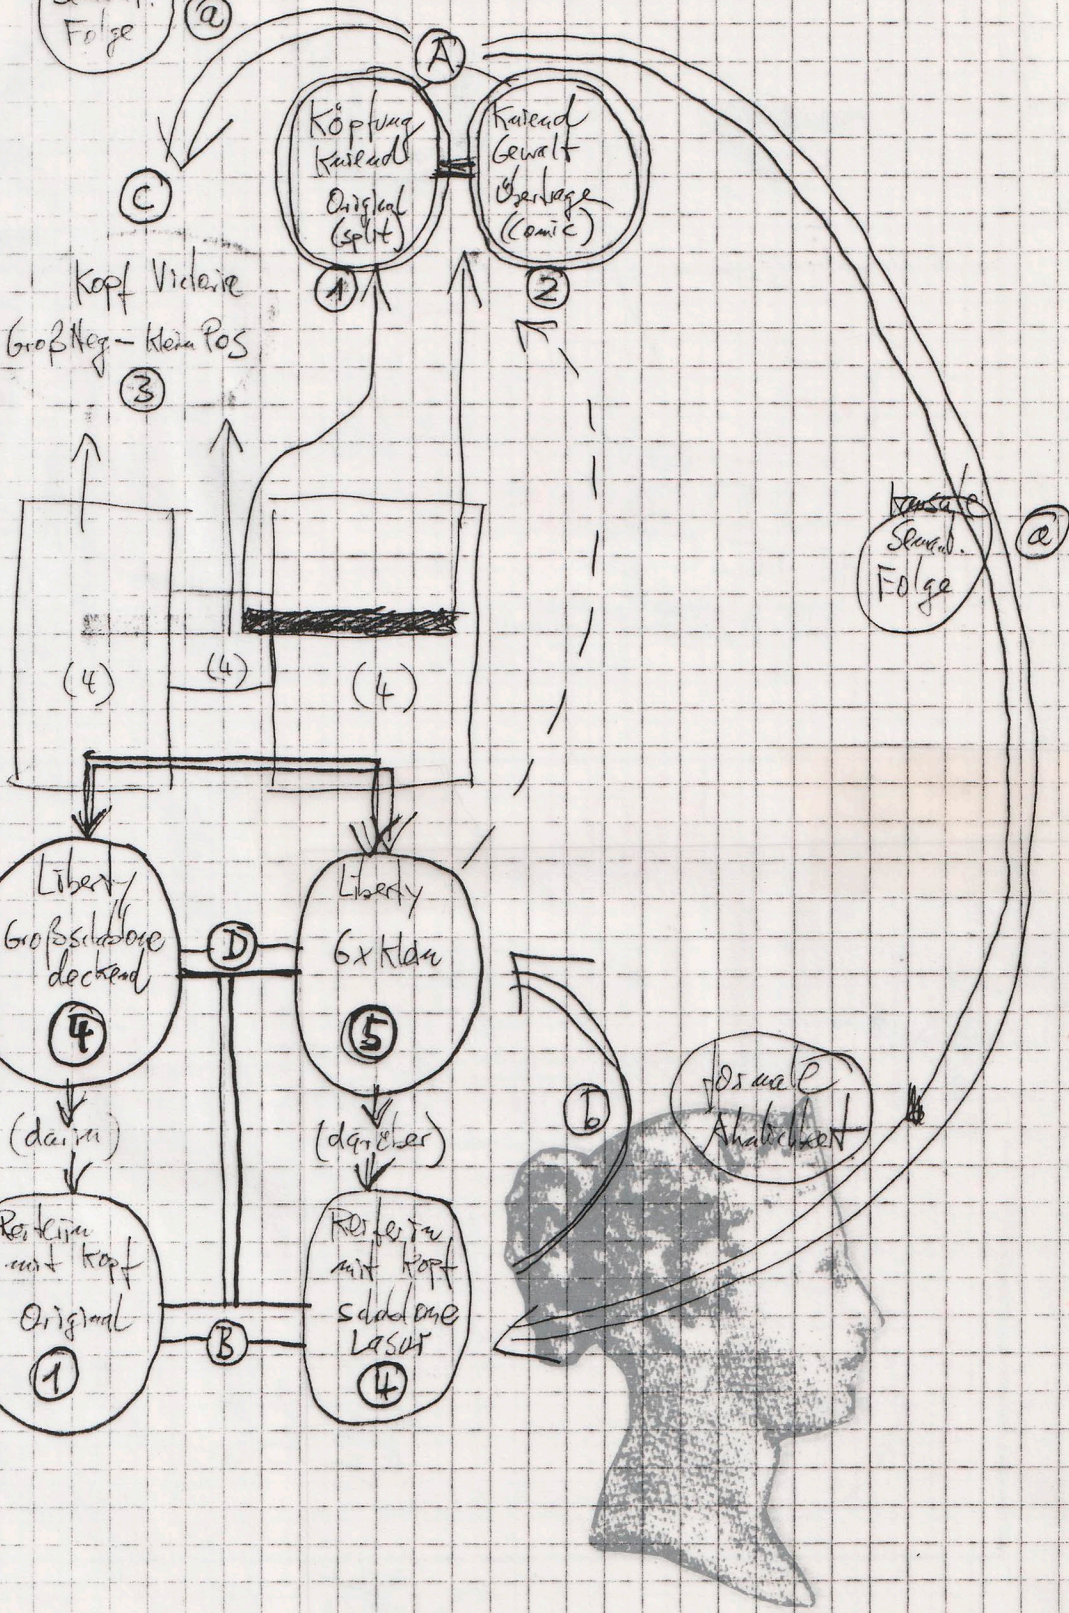 Folge
a
A
Köpfung
kniend
Original
(split)
1
Kniend
Gewalt
Übertrage
(comic)
2
C
Kopf Victoria
GroßNeg – klein Pos
3
kausale
Semant.
Folge
a
(4)
(4)
(4)
Liberty
Großschablone
deckend
4
D
Liberty
6x klein
5
(darin)
(darüber)
b
formale
Ähnlichkeit
Reiterin
mit Kopf
Original
1
B
Reiterin
mit Kopf
schablone
Lasur
4